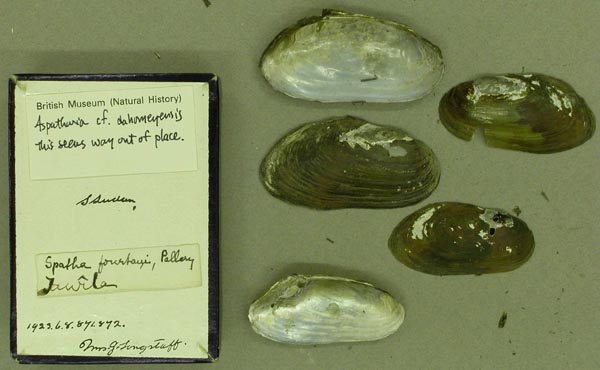 British Museum (Natural History)
Aspatharia cf. dahomeyensis
this seems way out of place.
S Sudan,
Spatha fourtaui, Pallary
1923.6.8.871.872.
Mrs J. Longstaff.